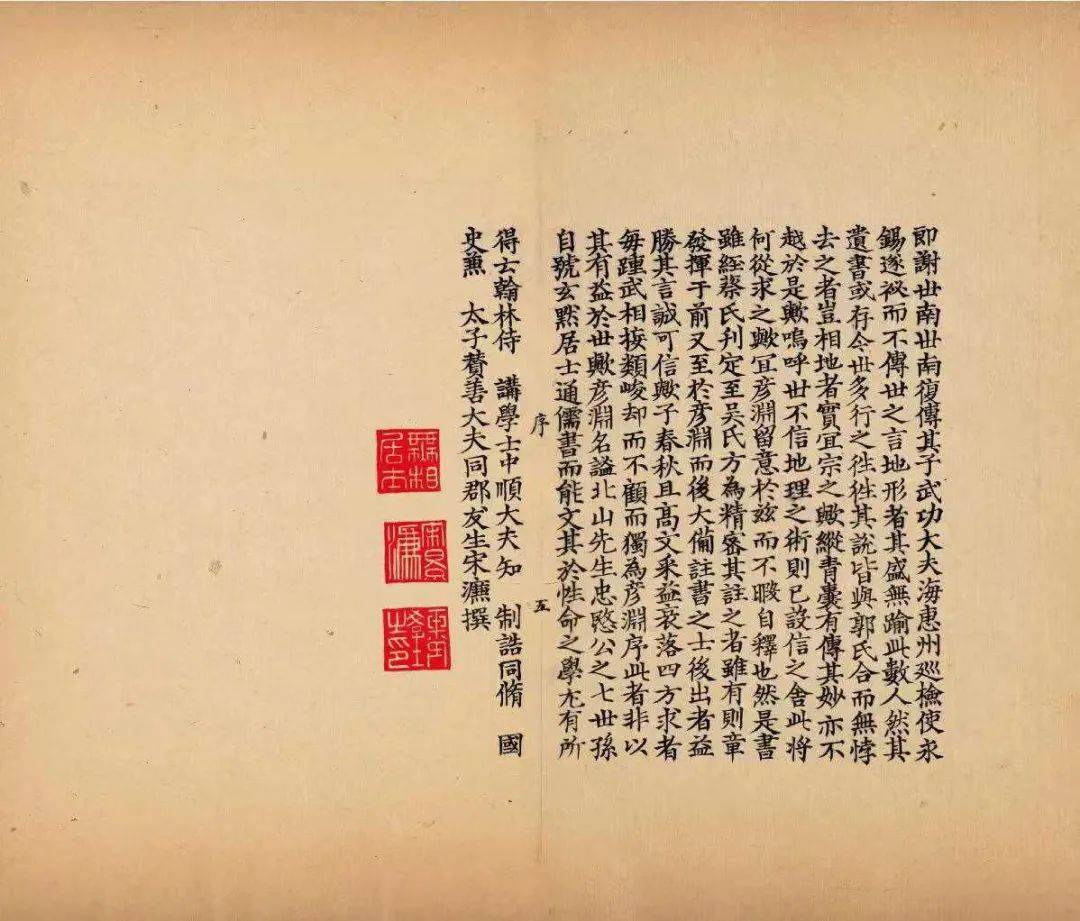 即謝世南世南復傳其子武功大夫海惠州巡檢使永
錫遂祕而不傳世之言地形者其盛無踰此數人然其
遺書或存今世多行之徃徃其說皆與郭氏合而無悖
去之者豈相地者實宜宗之歟縱青囊有傳其妙亦不
越於是歟嗚呼世不信地理之術則已設信之舍此將
何從求之歟冝彦淵留意於兹而不暇自釋也然是書
雖經蔡氏刋定至吴氏方為精審其註之者雖有則章
發揮于前又至於彦淵而後大備註書之士後出者益
勝其言誠可信歟予春秋且髙文采益衰落四方求者
毎踵武相接類峻却而不顧而獨為彦淵序此者非以
其有益於世歟彦淵名謐北山先生忠愍公之七世孫
自號玄默居士通儒書而能文其於性命之學尤有所
序 五
得云翰林侍 講學士中順大夫知 制誥同脩 國
史兼 太子賛善大夫同郡友生宋濂撰
無相居士
宋景濂